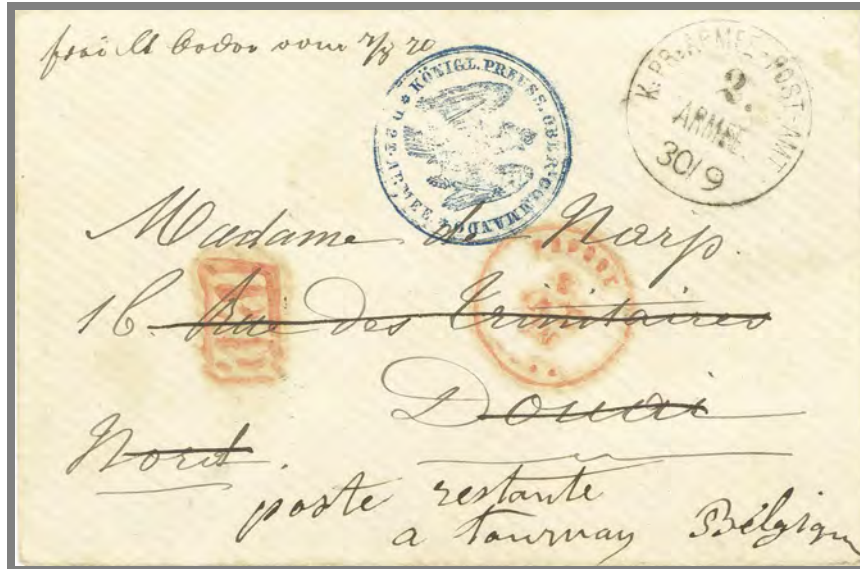 KÖNIGL. PREUSS. OBER-COMMANDO D. 2T. ARMEE
K. PR. ARMEE-POST-AMT
2.
ARMEE
30/9
Madame de Narp.
16 Rue des Trinitaires
Douai
Nord.
poste restante
a Tournay Belgique